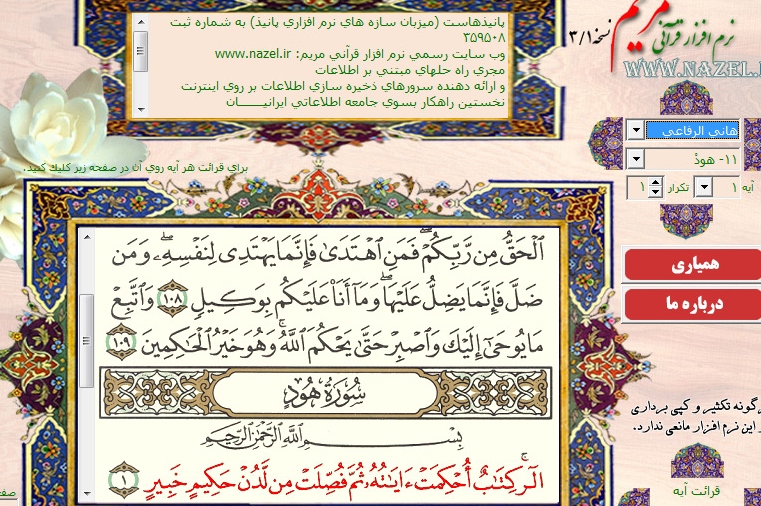 پانيذهاست (ميزبان سازه هاي نرم افزاري پانيذ) به شماره ثبت
۳۵۹۵۰۸
وب سايت رسمي نرم افزار قرآني مريم: www.nazel.ir
مجري راه حلهاي مبتني بر اطلاعات
و ارائه دهنده سرورهاي ذخيره سازي اطلاعات بر روي اينترنت
نخستين راهكار بسوي جامعه اطلاعاتي ايرانيـــــــان
نرم افزار قرآنی مریم نسخه ۳/۱
WWW.NAZEL.I
هاني الرفاعي
۱۱- هودْ
آیه ۱ تکرار ۱
همیاری
درباره ما
براي قرائت هر آيه روي آن در صفحه زير كليك كنيد.
ٱلۡحَقُّ مِن رَّبِّكُمۡۖ فَمَنِ ٱهۡتَدَىٰ فَإِنَّمَا يَهۡتَدِى لِنَفۡسِهِۦۖ وَمَن
ضَلَّ فَإِنَّمَا يَضِلُّ عَلَيۡهَاۖ وَمَآ أَنَا۠ عَلَيۡكُم بِوَكِيلٍ ۱۰۸ وَٱتَّبِعۡ
مَا يُوحَىٰٓ إِلَيۡكَ وَٱصۡبِرۡ حَتَّىٰ يَحۡكُمَ ٱللَّهُۚ وَهُوَ خَيۡرُ ٱلۡحَٰكِمِينَ ۱۰۹
سُورَةُ هُودٍ
بِسۡمِ ٱللَّهِ ٱلرَّحۡمَٰنِ ٱلرَّحِيمِ
الٓرۚ كِتَٰبٌ أُحۡكِمَتۡ ءَايَٰتُهُۥ ثُمَّ فُصِّلَتۡ مِن لَّدُنۡ حَكِيمٍ خَبِيرٍ ۱
رگونه تکثیر و کپی برداری
ز این نرم افزار مانعی ندارد.
قرائت آیه
صفح